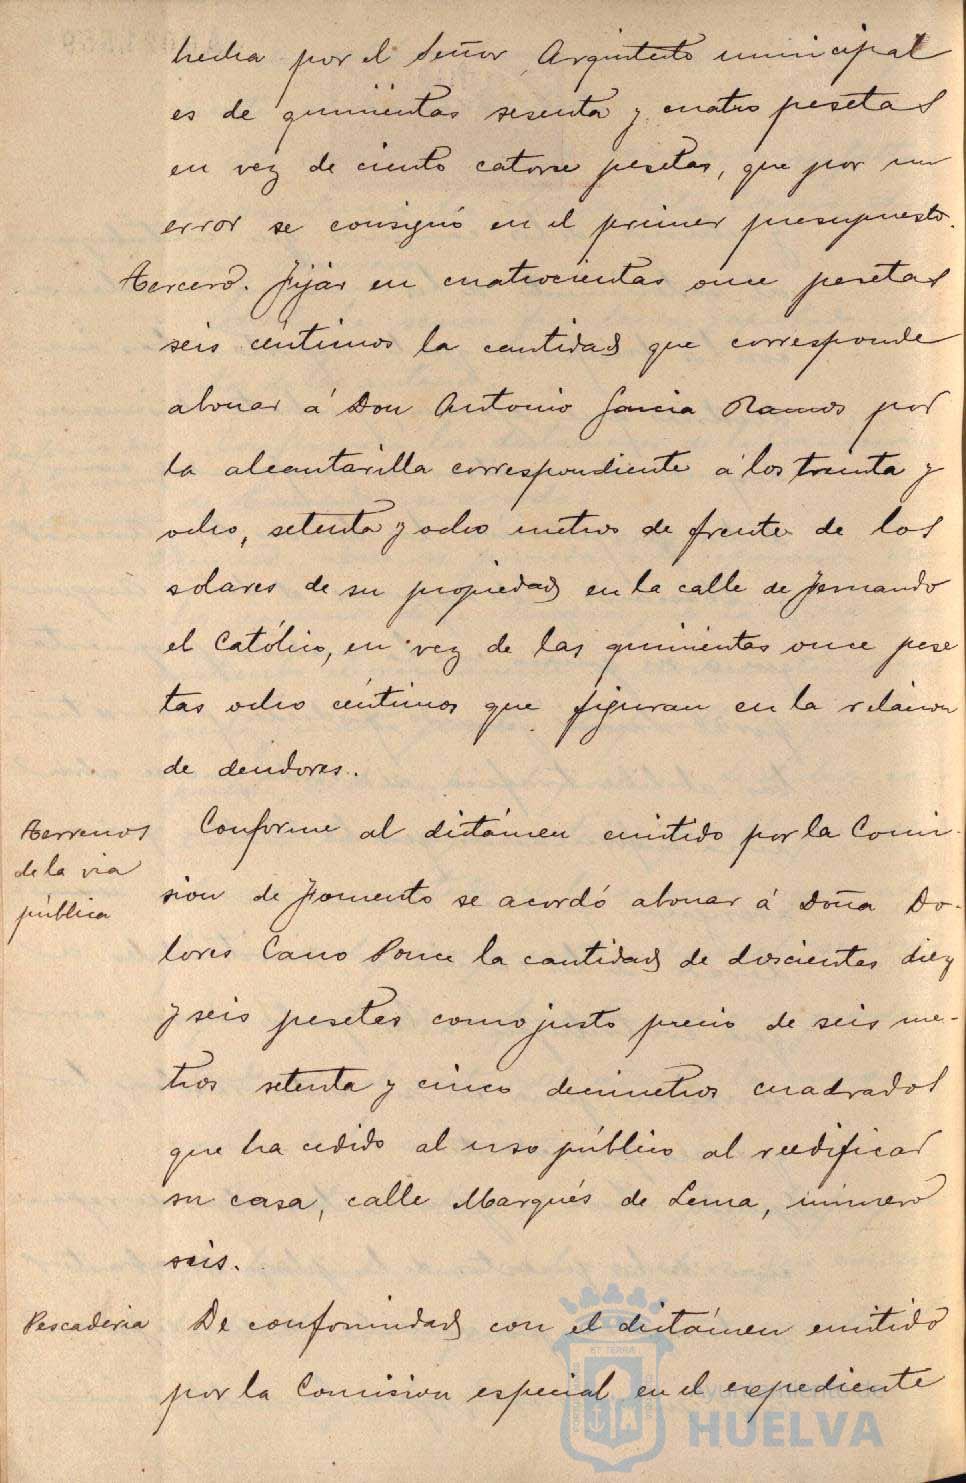 hecha por el Señor Arquitecto municipal
es de quinientas sesenta y cuatro pesetas
en vez de ciento catorce pesetas, que por un
error se consignó en el primer presupuesto.
Tercero. Fijar en cuatrocientas once pesetas
seis céntimos la cantidad que corresponde
abonar á Don Antonio Garcia Ramos por
la alcantarilla correspondiente á los treinta y
ocho, setenta y ocho metros de frente de los
solares de su propiedad en la calle de Fernando
el Católico, en vez de las quinientas once pese
tas ocho céntimos que figuran en la relacion
de deudores.
Terrenos
de la via
pública
Conforme al dictámen emitido por la Comi-
sion de Fomento se acordó abonar á Doña Do-
lores Cano Ponce la cantidad de doscientas diez
y seis pesetas como justo precio de seis me-
tros setenta y cinco decimetros cuadrados
que ha cedido al uso público al reedificar
su casa, calle Marqués de Lema, número
seis.
Pescaderia
De conformidad con el dictámen emitido
por la Comision especial en el expediente
Ayuntamiento de
HUELVA